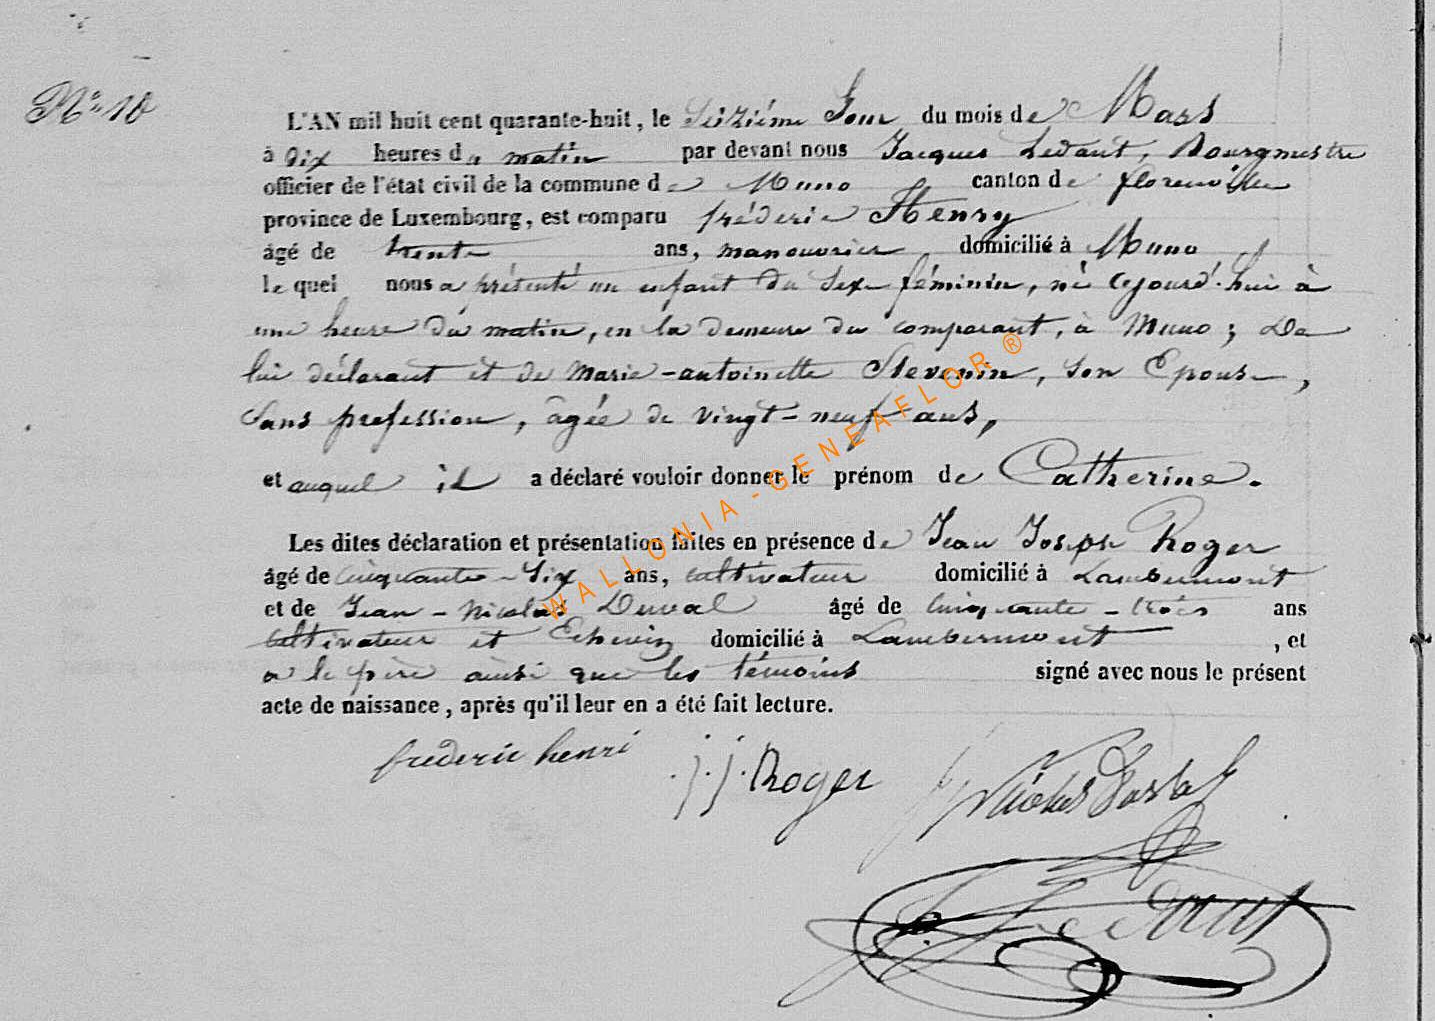 N° 10
L'AN mil huit cent quarante-huit, le Seizième Jour du mois de Mars
à dix heures du matin par devant nous Jacques Ledant, Bourgmestre
officier de l'état civil de la commune de Muno canton de florenville
province de Luxembourg, est comparu fréderic Henry
âgé de trente ans, manouvrier domicilié à Muno
le quel nous a présenté un enfant du Sexe féminin, né cejourd'hui à
une heure du matin, en la demeure du comparant, à Muno; De
lui déclarant et de Marie-antoinette Stevenin, son Epouse,
Sans profession, âgée de vingt-neuf ans,
et auquel il a déclaré vouloir donner le prénom de Catherine.
Les dites déclaration et présentation faites en présence de Jean Joseph Roger
âgé de cinquante-Six ans, cultivateur domicilié à Lambermont
et de Jean-Nicolas Duval âgé de cinquante-trois ans
cultivateur et Echevin domicilié à Lambermont, et
a le père ainsi que les témoins signé avec nous le présent
acte de naissance, après qu'il leur en a été fait lecture.
frederic henri
j.j. Roger
Nicolas
Ledant
WALLONIA-GENEAFLOR ®